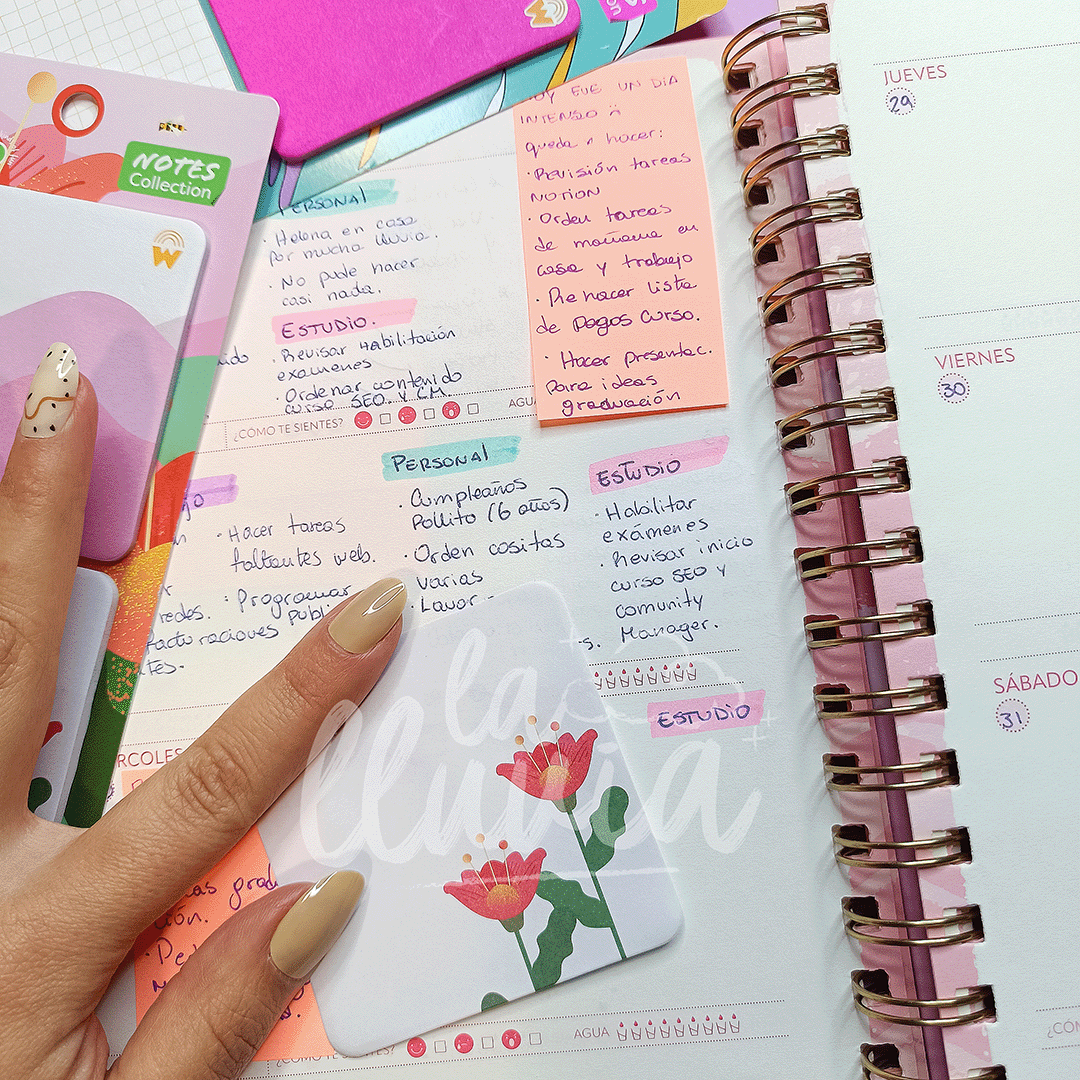 NOTES
Collection
W
W
PERSONAL
· Helena en casa
por mucha lluvia.
· No pude hacer
casi nada.
ESTUDIO.
· Revisar Habilitación
exámenes
· Ordenar contenido
curso SEO. y C.M.
¿CÓMO TE SIENTES?
AGUA
HOY FUE UN DIA
INTENSO
queda x hacer:
· Revisión tareas
NOTION
· Orden tareas
de mañana en
casa y trabajo
· Re hacer lista
de Pagos Curso.
· Hacer presentac.
para ideas
graduación
· Hacer tareas
faltantes web.
· Programar
publi
redes.
facturaciones
tes.
PERSONAL
· Cumpleaños
Pollito (6 años)
· Orden cositas
varias
· Lavar
ESTUDIO
· Habilitar
exámenes
· Revisar inicio
curso SEO y
comunity
Manager.
ESTUDIO
la
lluvia
RCOLES
ción.
¿CÓMO TE SIENTES?
AGUA
JUEVES
29
VIERNES
30
SÁBADO
31
¿CÓ